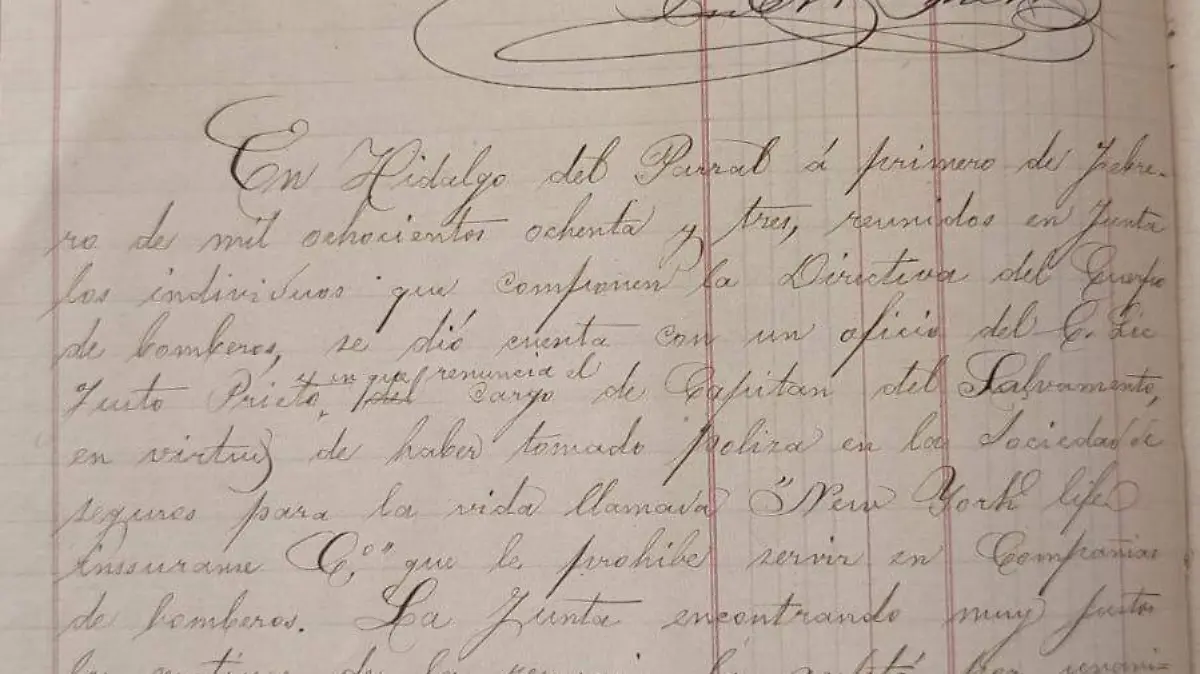 En Hidalgo del Parral á primero de Febre-
ro de mil ochocientos ochenta y tres, reunidos en Junta
los individuos que componen la Directiva del Cuerpo
de bomberos, se dió cuenta con un oficio del C. Lic
Justo Prieto, en que renuncia el cargo de Capitan del Salvamento,
en virtud de haber tomado poliza en la Sociedad de
seguros para la vida llamada "New York life
Inssuranse C.º" que le prohibe servir en Compañias
de bomberos. La Junta encontrando muy justos
los motivos de la renuncia la aceptó por unani-